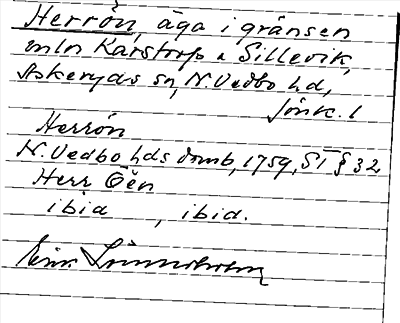 Herrön, äga i gränsen
mln Karstorp o Sillevik,
Askeryds sn, N. Vedbo hd,
Jönk. l
Herrön
N. Vedbo hds domb, 1759, ST § 32
Herr Öen
ibid , ibid.